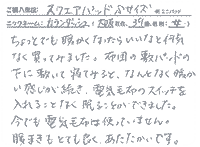 ご購入商品: スクエアパッド Sサイズ
ニックネーム: カランダッシュ (大阪在住, 39歳, 性別: 女)
ちょっとでも暖かくなったらいいなと何気
なく買ってみました。布団の敷パッドの
下に敷いて寝てみると、なんとなく暖か
い感じが続き、電気毛布のスイッチを
入れることなく眠ることができました。
今でも電気毛布は使っていません。
腰まきもとても良く、あたたかいです。